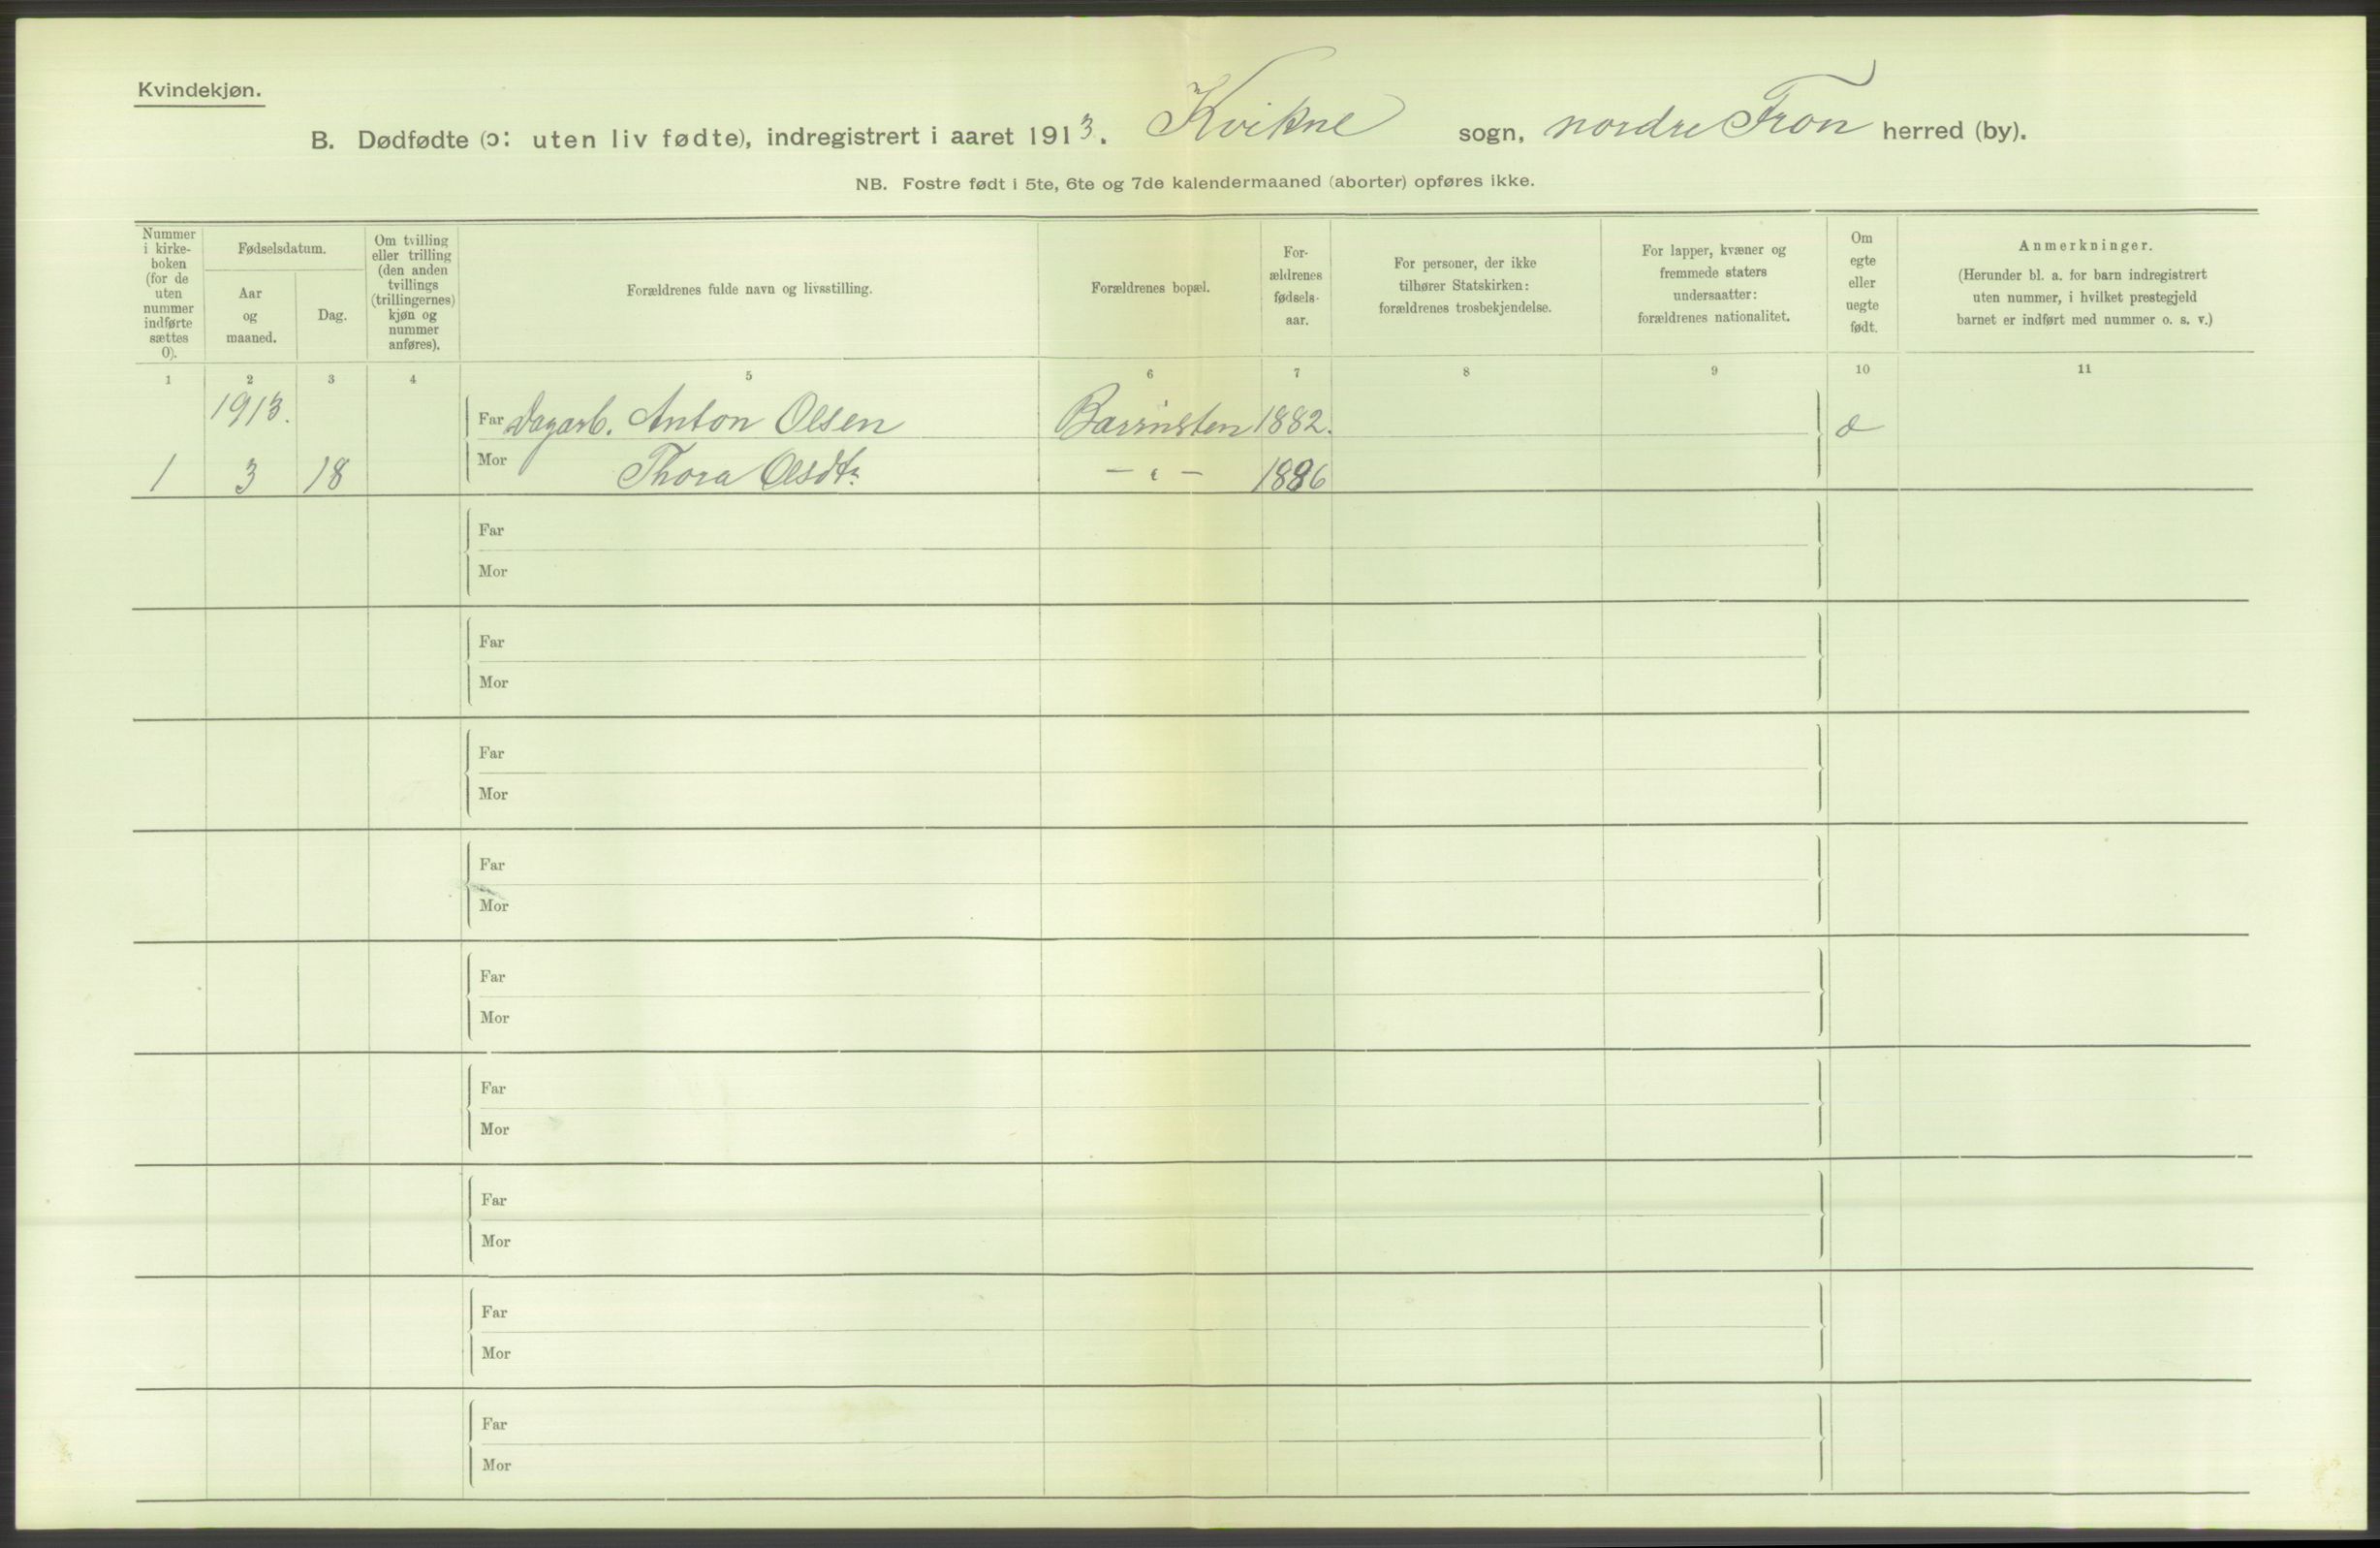 Kvindekjøn.
B. Dødfødte (ɔ: uten liv fødte), indregistrert i aaret 1913. Kvikne sogn, nordre Fron herred (by).
NB. Fostre født i 5te, 6te og 7de kalendermaaned (aborter) opføres ikke.
Nummer i kirke-boken (for de uten nummer indførte sættes 0).
Fødselsdatum.
Aar og maaned.
Dag.
Om tvilling eller trilling (den anden tvillings (trillingernes) kjøn og nummer anføres).
Forældrenes fulde navn og livsstilling.
Forældrenes bopæl.
For-ældrenes fødsels-aar.
For personer, der ikke tilhører Statskirken: forældrenes trosbekjendelse.
For lapper, kvæner og fremmede staters undersaatter: forældrenes nationalitet.
Om egte eller uegte født.
Anmerkninger.
(Herunder bl. a. for barn indregistrert uten nummer, i hvilket prestegjeld barnet er indført med nummer o. s. v.)
1 2 3 4 5 6 7 8 9 10 11
1913. Far Dagarb. Anton Olsen 1882. e
1 3 18 Mor Thora Olsdtr. — " — 1886
Far
Mor
Far
Mor
Far
Mor
Far
Mor
Far
Mor
Far
Mor
Far
Mor
Far
Mor
Far
Mor